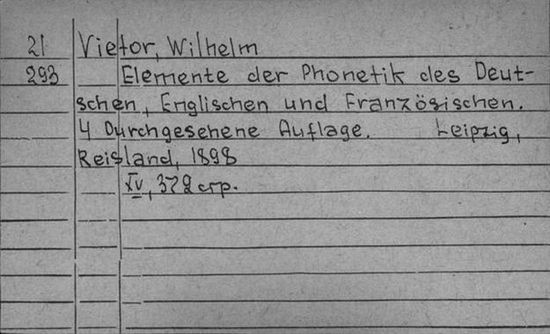 21 Vietor, Wilhelm
293 Elemente der Phonetik des Deut-
schen, Englischen und Französischen.
4 Durchgesehene Auflage. Leipzig,
Reisland, 1898
XV, 372 стр.